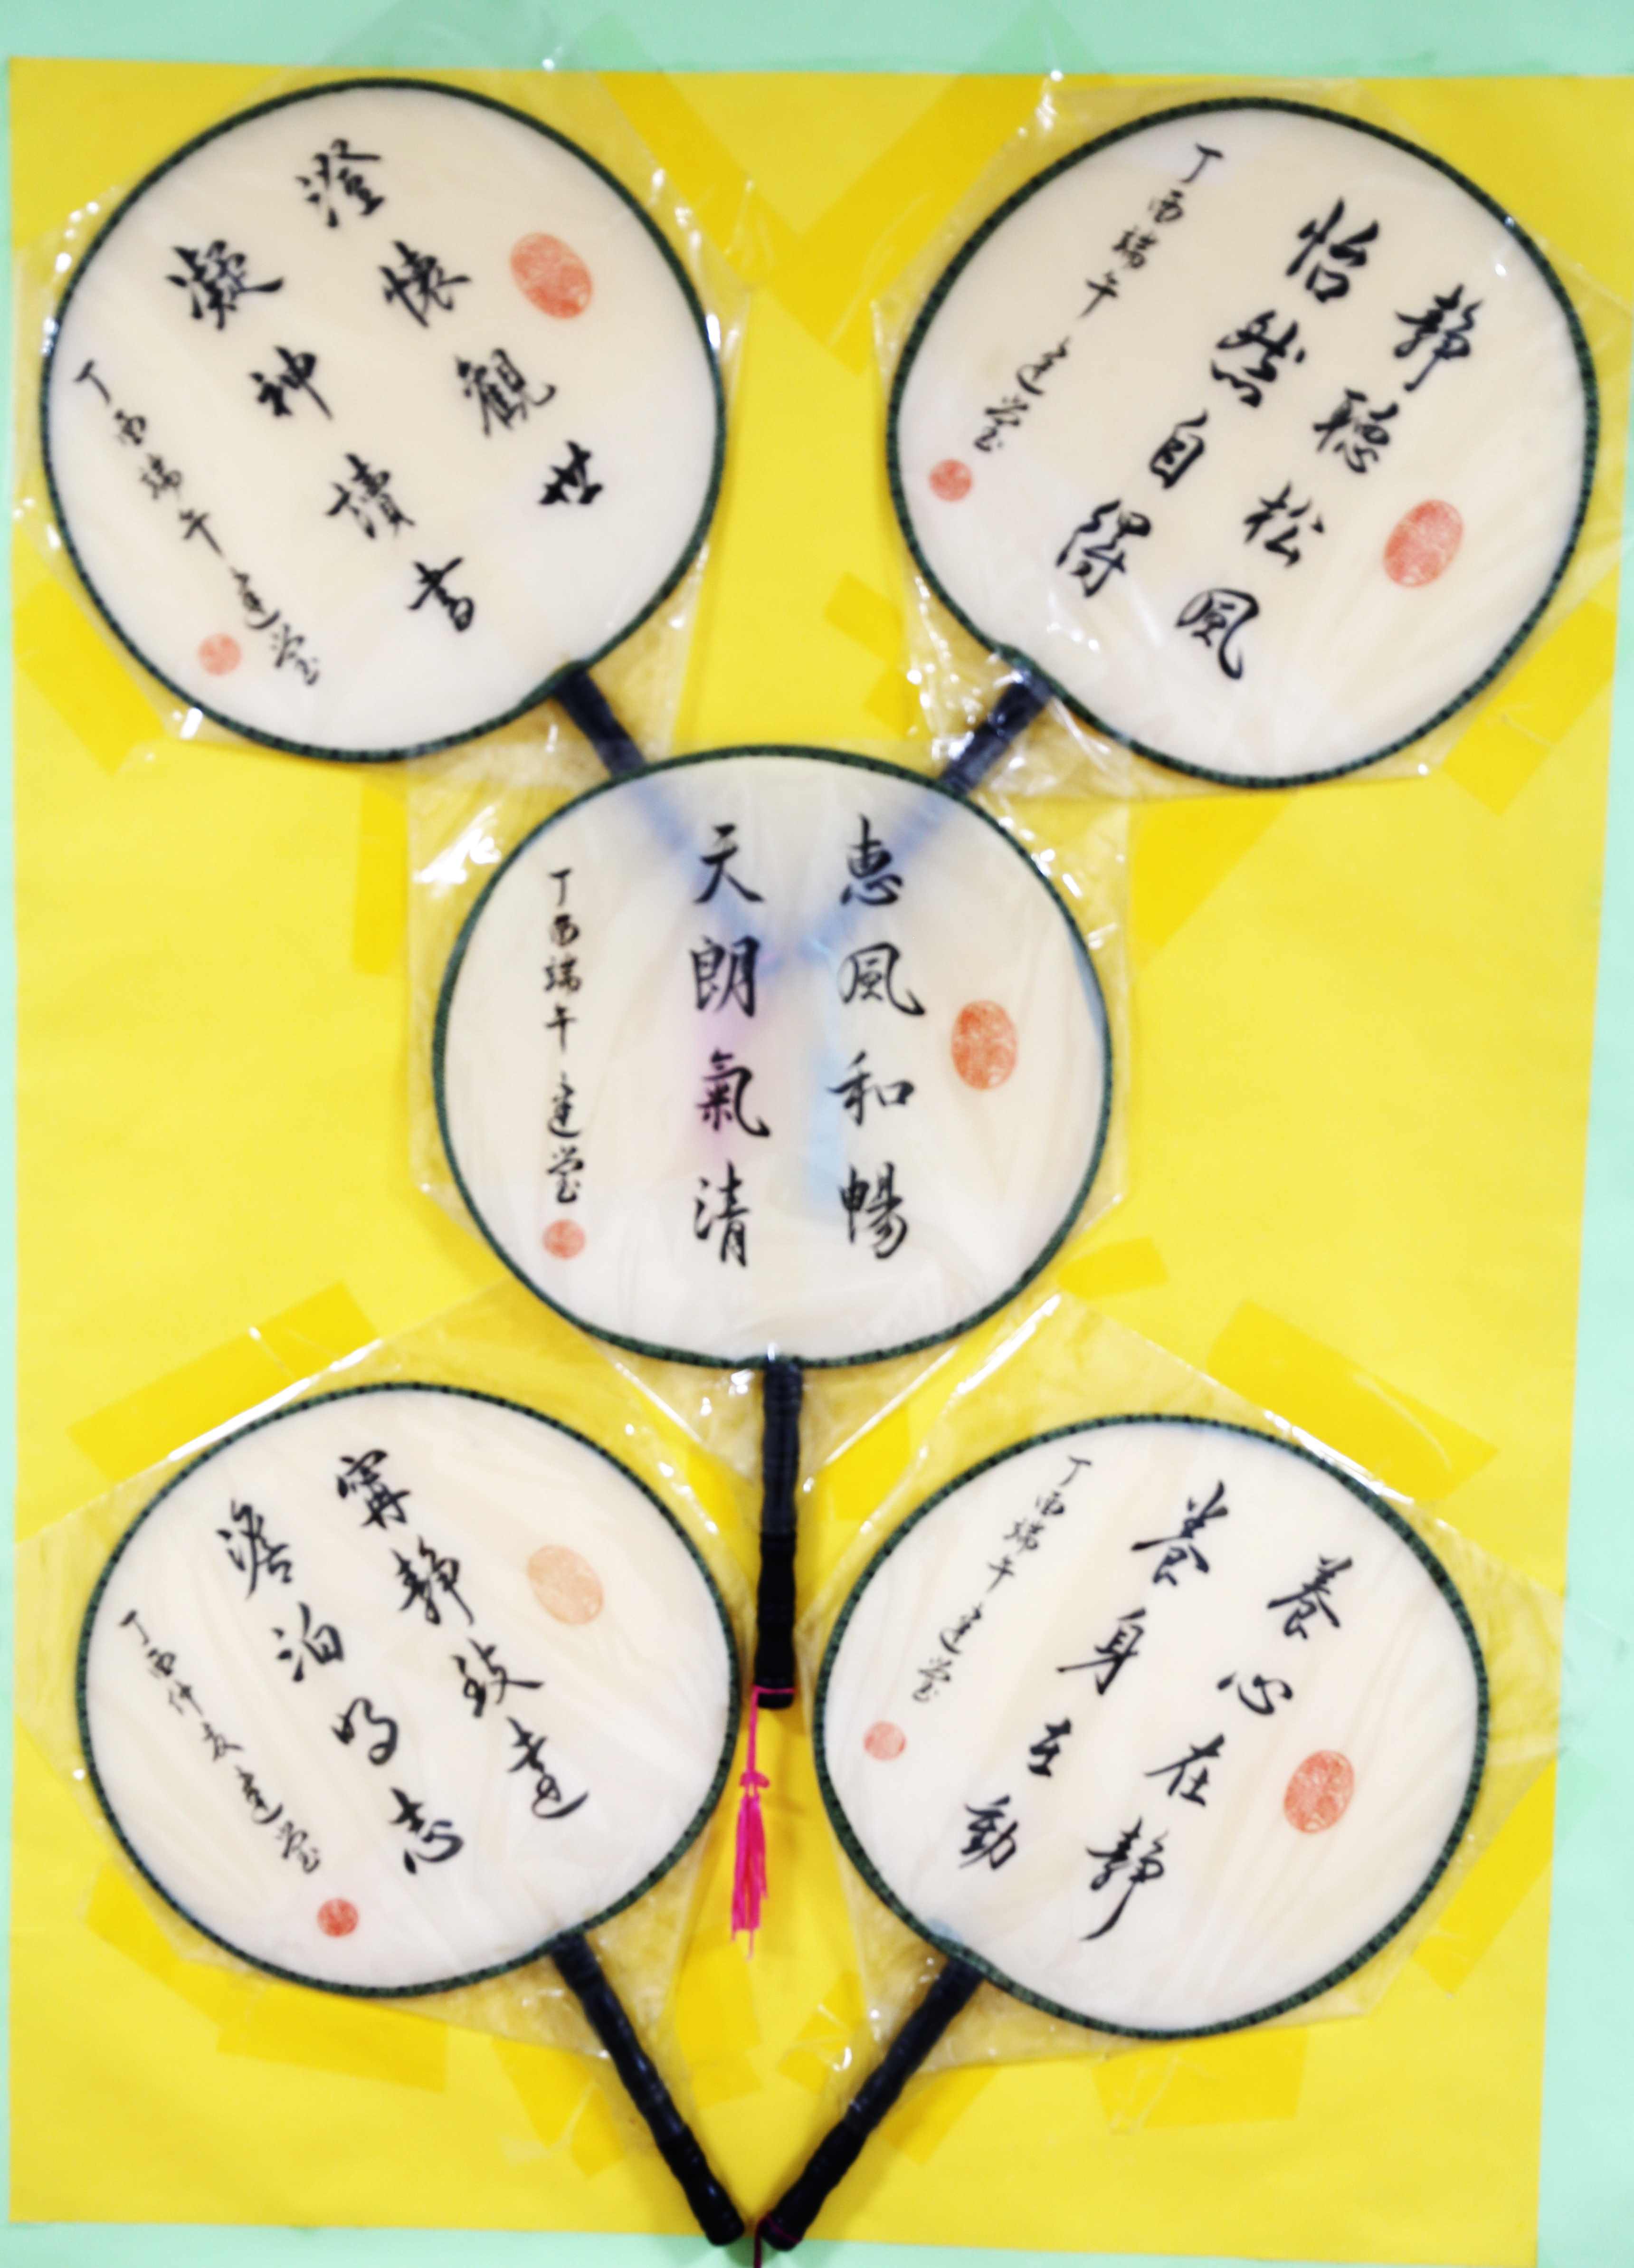 澄懷觀世
凝神讀書
丁酉端午 建瑩
靜聽松風
怡然自得
丁酉端午 建瑩
惠風和暢
天朗氣清
丁酉端午 建瑩
寧靜致遠
澹泊明志
丁酉仲夏 建瑩
養心在靜
養身在動
丁酉端午 建瑩